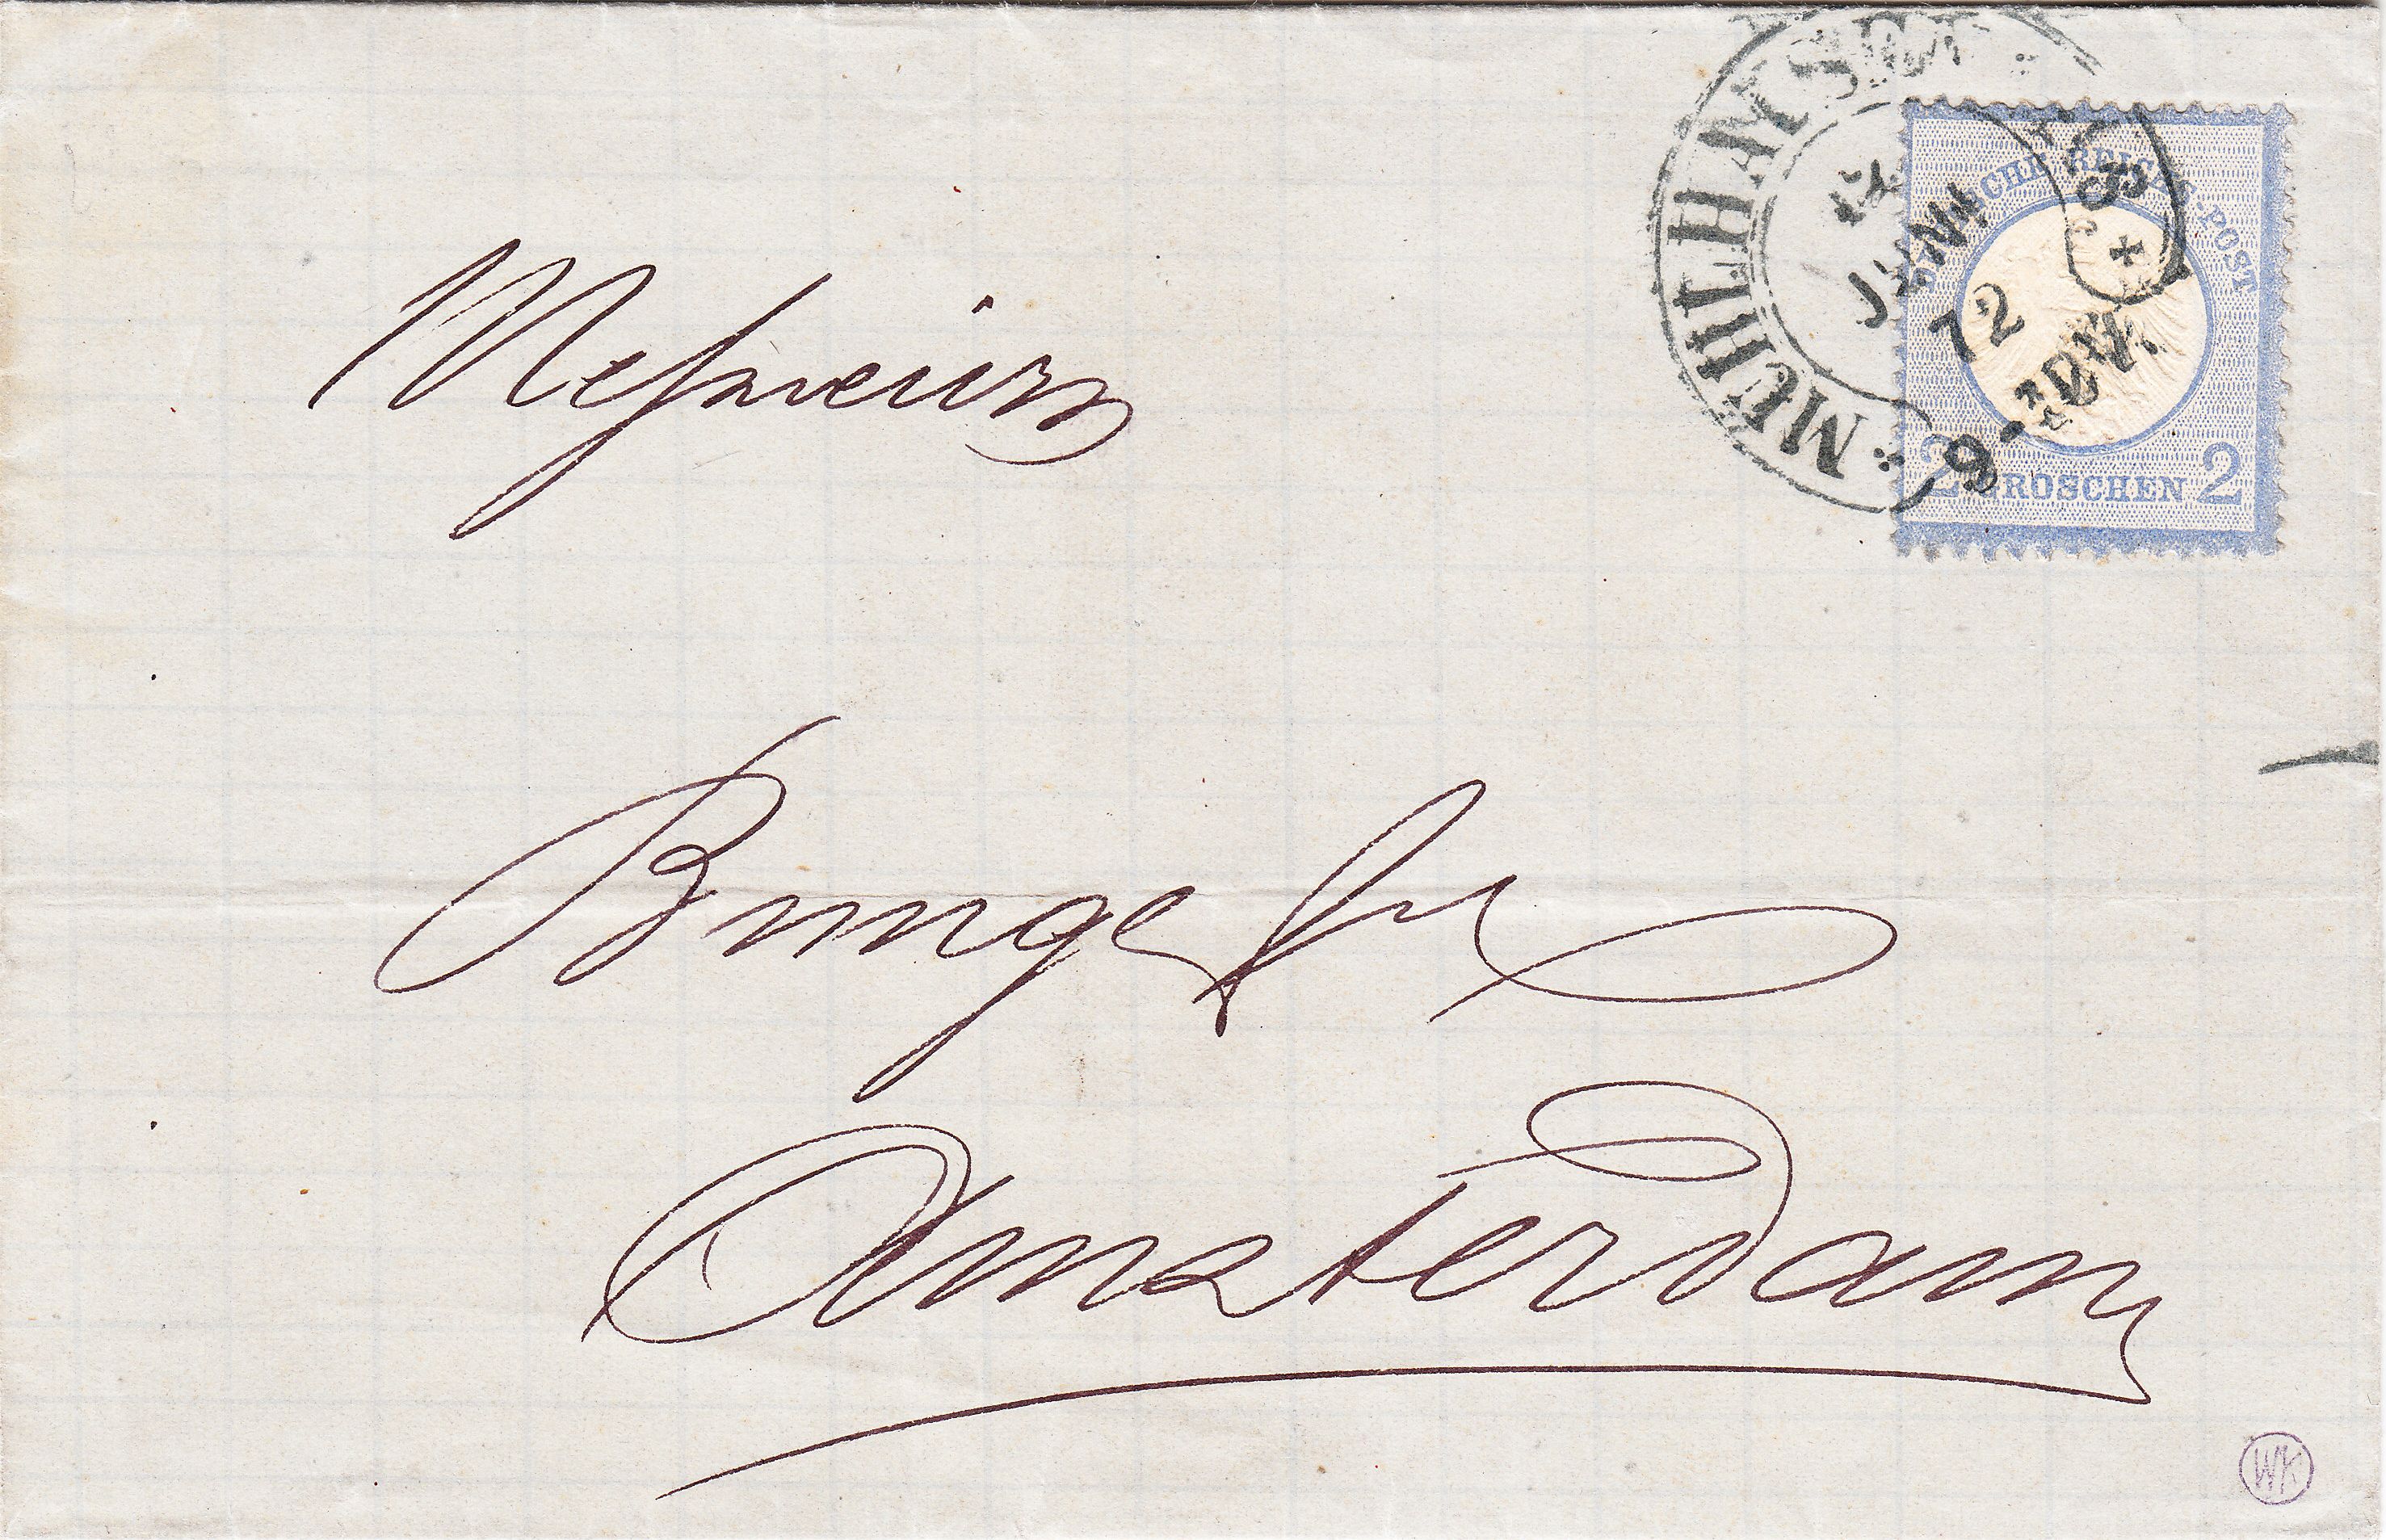 MÜHLHAM
JUNI
72
9-
DEUTSCHE REICHS-POST
2 GROSCHEN 2
Messieurs
Bunge
Amsterdam
WK